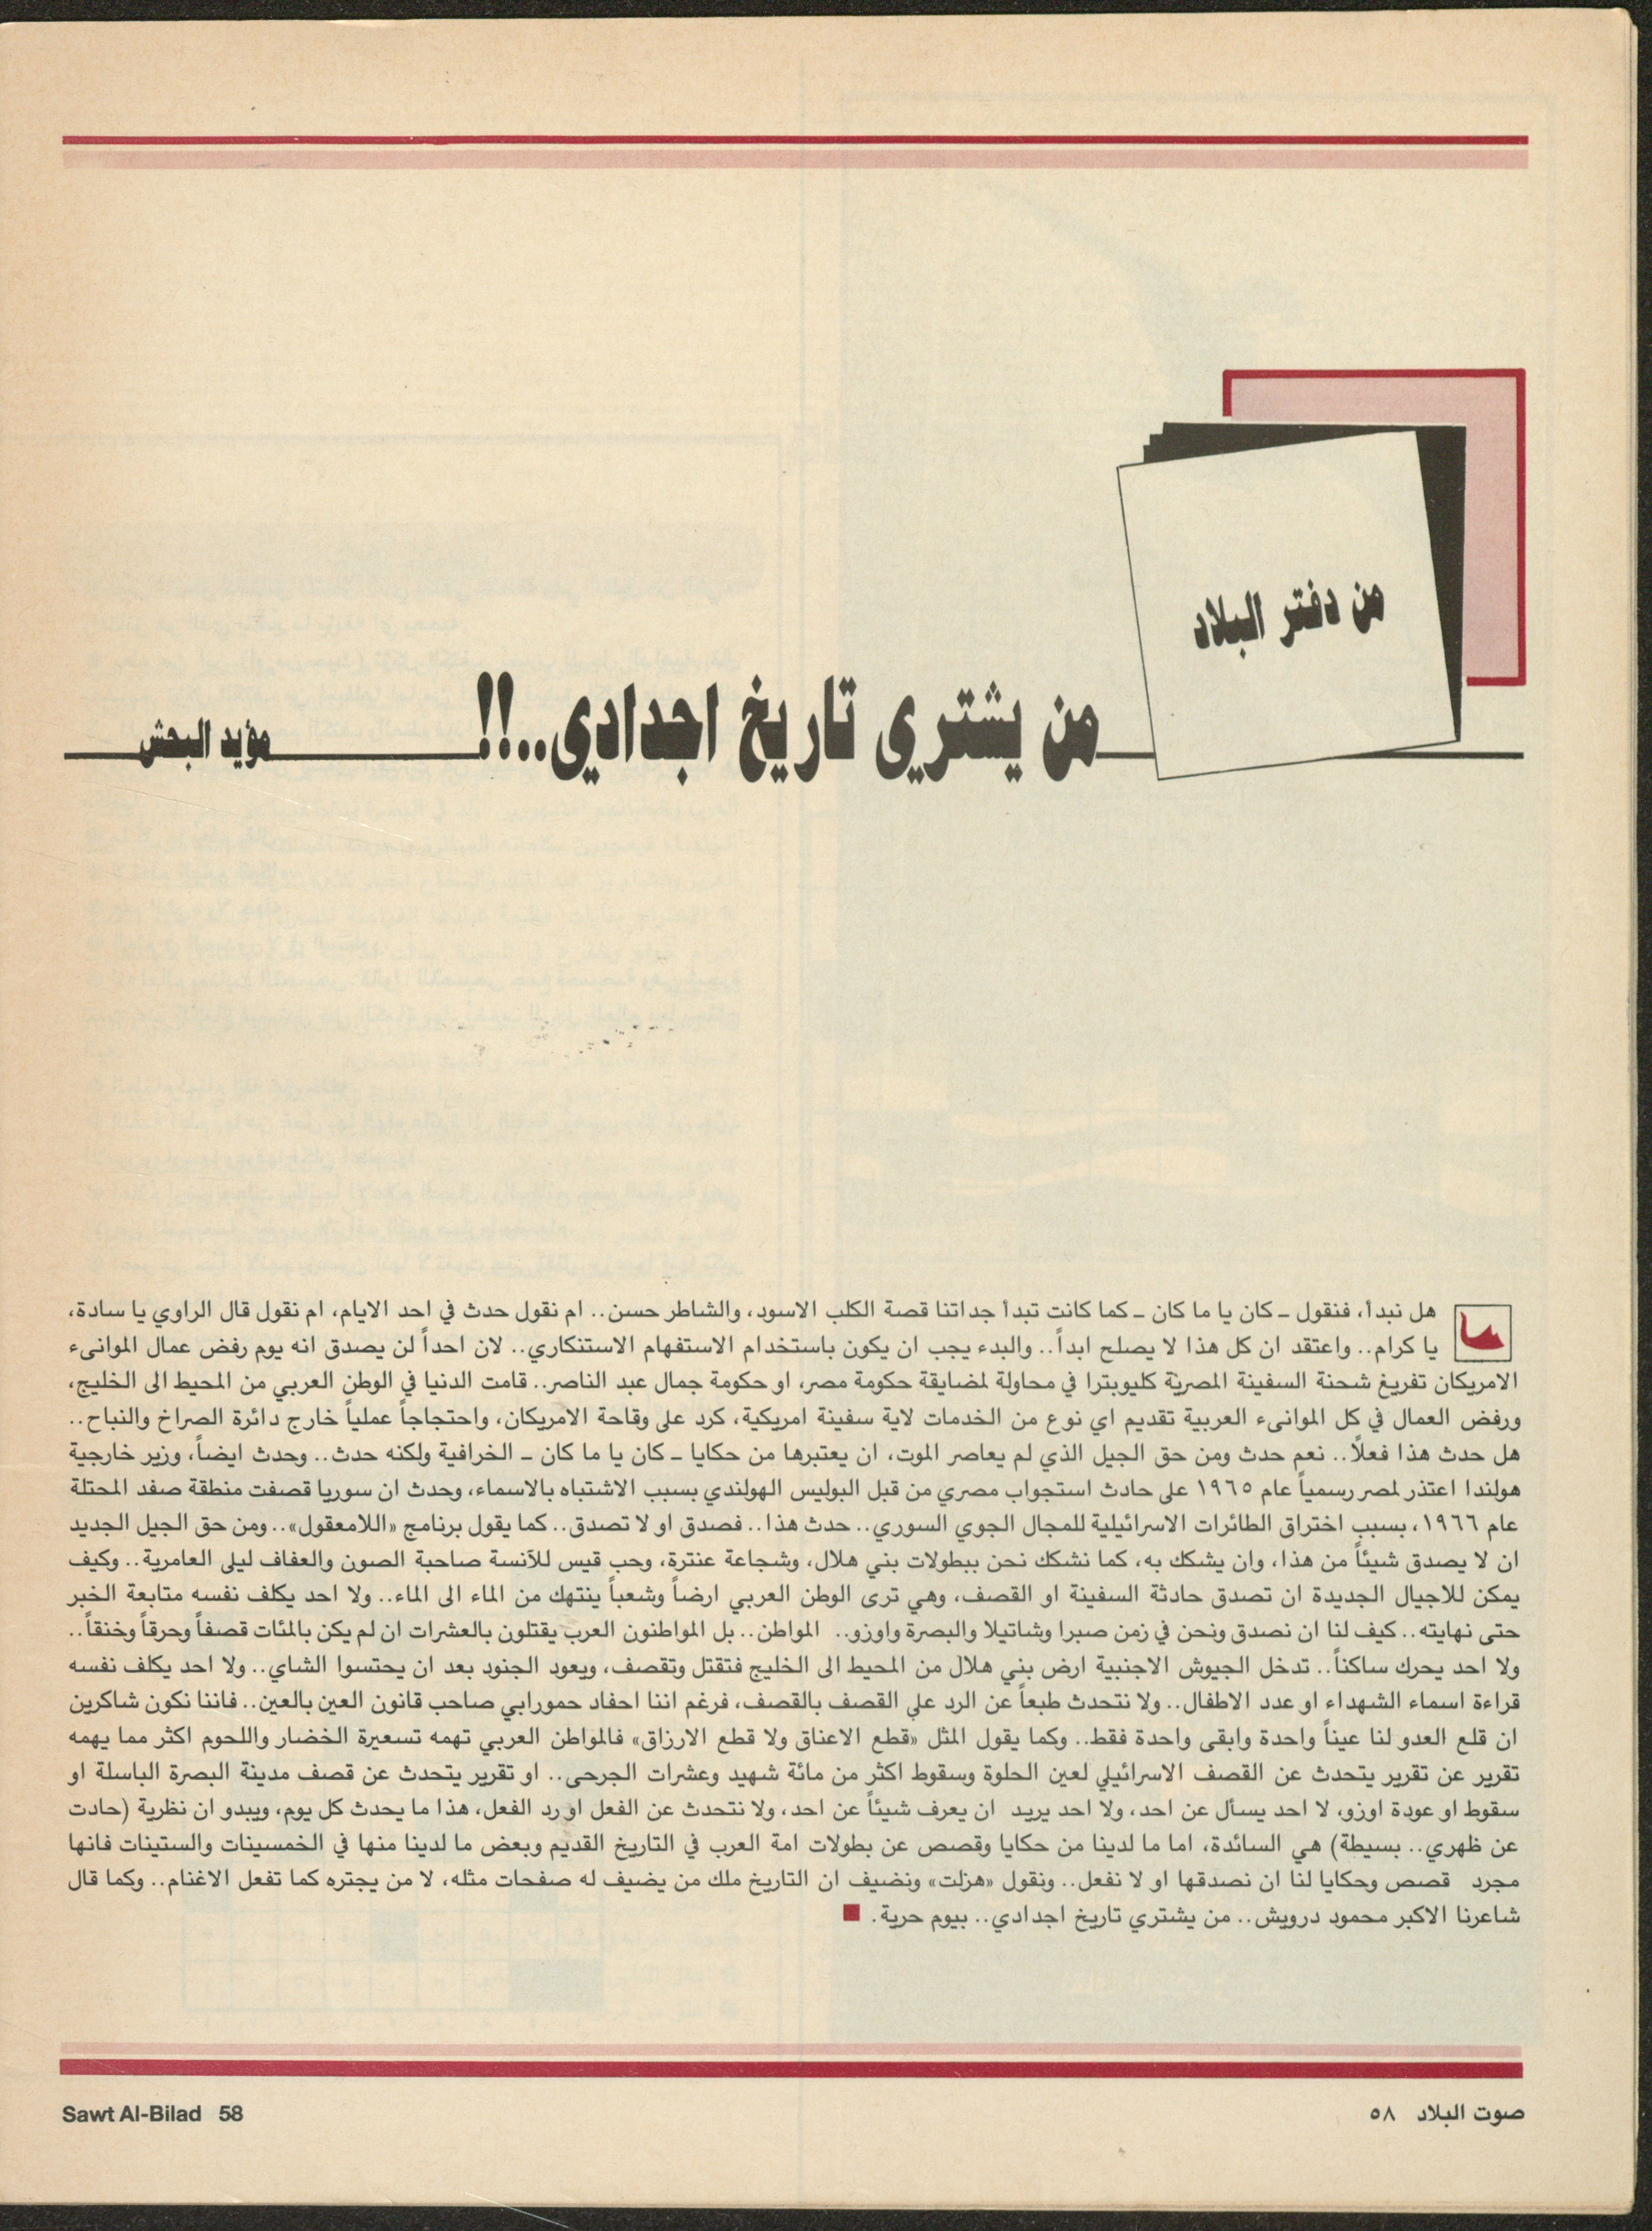 من دفتر البلاد
من يشتري تاريخ اجدادي..!!
مؤيد البحش
هل نبدأ، فنقول ـ كان يا ما كان ـ كما كانت تبدأ جداتنا قصة الكلب الاسود، والشاطر حسن.. ام نقول حدث في احد الايام، ام نقول قال الراوي يا سادة،
يا كرام.. واعتقد ان كل هذا لا يصلح ابداً.. والبدء يجب ان يكون باستخدام الاستفهام الاستنكاري.. لان احداً لن يصدق انه يوم رفض عمال الموانىء
الامريكان تفريغ شحنة السفينة المصريّة كليوبترا في محاولة لمضايقة حكومة مصر، او حكومة جمال عبد الناصر.. قامت الدنيا في الوطن العربي من المحيط الى الخليج،
ورفض العمال في كل الموانىء العربية تقديم اي نوع من الخدمات لاية سفينة امريكية، كرد على وقاحة الامريكان، واحتجاجاً عملياً خارج دائرة الصراخ والنباح..
هل حدث هذا فعلاً.. نعم حدث ومن حق الجيل الذي لم يعاصر الموت، ان يعتبرها من حكايا ـ كان يا ما كان ـ الخرافية ولكنه حدث.. وحدث ايضاً، وزير خارجية
هولندا اعتذر لمصر رسمياً عام ١٩٦٥ على حادث استجواب مصري من قبل البوليس الهولندي بسبب الاشتباه بالاسماء، وحدث ان سوريا قصفت منطقة صفد المحتلة
عام ١٩٦٦، بسبب اختراق الطائرات الاسرائيلية للمجال الجوي السوري.. حدث هذا.. فصدق او لا تصدق.. كما يقول برنامج «اللامعقول».. ومن حق الجيل الجديد
ان لا يصدق شيئاً من هذا، وان يشكك به، كما نشكك نحن ببطولات بني هلال، وشجاعة عنترة، وحب قيس للآنسة صاحبة الصون والعفاف ليلى العامرية.. وكيف
يمكن للاجيال الجديدة ان تصدق حادثة السفينة او القصف، وهي ترى الوطن العربي ارضاً وشعباً ينتهك من الماء الى الماء.. ولا احد يكلف نفسه متابعة الخبر
حتى نهايته.. كيف لنا ان نصدق ونحن في زمن صبرا وشاتيلا والبصرة واوزو.. المواطن.. بل المواطنون العرب يقتلون بالعشرات ان لم يكن بالمئات قصفاً وحرقاً وخنقاً..
ولا احد يحرك ساكناً.. تدخل الجيوش الاجنبية ارض بني هلال من المحيط الى الخليج فتقتل وتقصف، ويعود الجنود بعد ان يحتسوا الشاي.. ولا احد يكلف نفسه
قراءة اسماء الشهداء او عدد الاطفال.. ولا نتحدث طبعاً عن الرد على القصف بالقصف، فرغم اننا احفاد حمورابي صاحب قانون العين بالعين.. فاننا نكون شاكرين
ان قلع العدو لنا عيناً واحدة وابقى واحدة فقط.. وكما يقول المثل «قطع الاعناق ولا قطع الارزاق» فالمواطن العربي تهمه تسعيرة الخضار واللحوم اكثر مما يهمه
تقرير عن تقرير يتحدث عن القصف الاسرائيلي لعين الحلوة وسقوط اكثر من مائة شهيد وعشرات الجرحى.. او تقرير يتحدث عن قصف مدينة البصرة الباسلة او
سقوط او عودة اوزو، لا احد يسأل عن احد، ولا احد يريد ان يعرف شيئاً عن احد، ولا نتحدث عن الفعل او رد الفعل، هذا ما يحدث كل يوم، ويبدو ان نظرية (حادت
عن ظهري.. بسيطة) هي السائدة، اما ما لدينا من حكايا وقصص عن بطولات امة العرب في التاريخ القديم وبعض ما لدينا منها في الخمسينات والستينات فانها
مجرد قصص وحكايا لنا ان نصدقها او لا نفعل.. ونقول «هزلت» ونضيف ان التاريخ ملك من يضيف له صفحات مثله، لا من يجتره كما تفعل الاغنام.. وكما قال
شاعرنا الاكبر محمود درويش.. من يشتري تاريخ اجدادي.. بيوم حرية.
صوت البلاد ٥٨
Sawt Al-Bilad 58